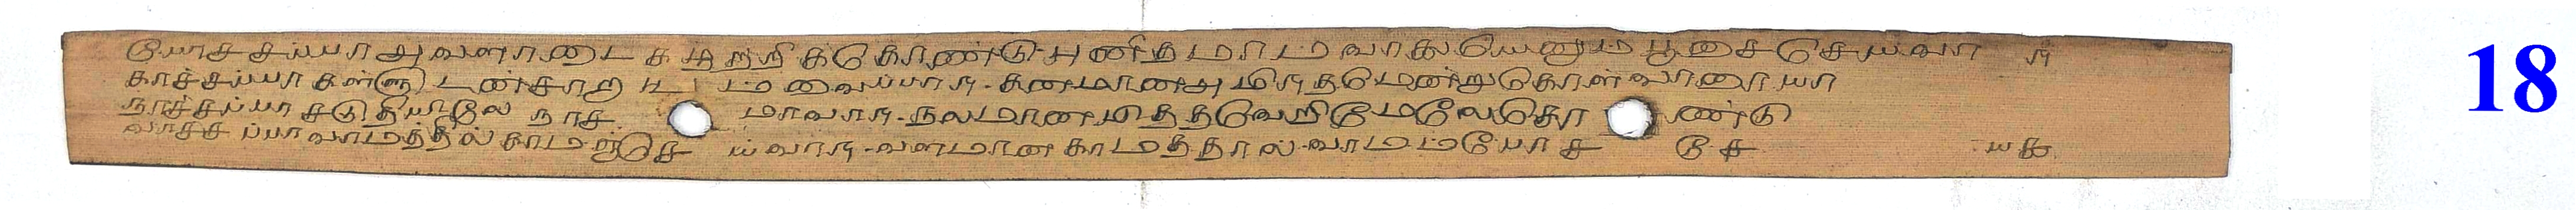 போச்சப்பா அவளுடைக சுற்றிக்கொண்டு புனிதமாம் வாகுயெனும் பூசைசெய்வார்
காச்சப்பா கள்ளுடன் சாறும் வைப்பார் கனமான அமிர்தமென்று கொள்வாரையா
நாச்சப்பா சடுதியிலே நாசமாவார் நலமான மித்த வெறி மேலே கொண்டு
வாச்சப்பா வாமத்தில் காமஞ்செய்வார் வளமான காமத்தால் வாமம்போச்சே
18